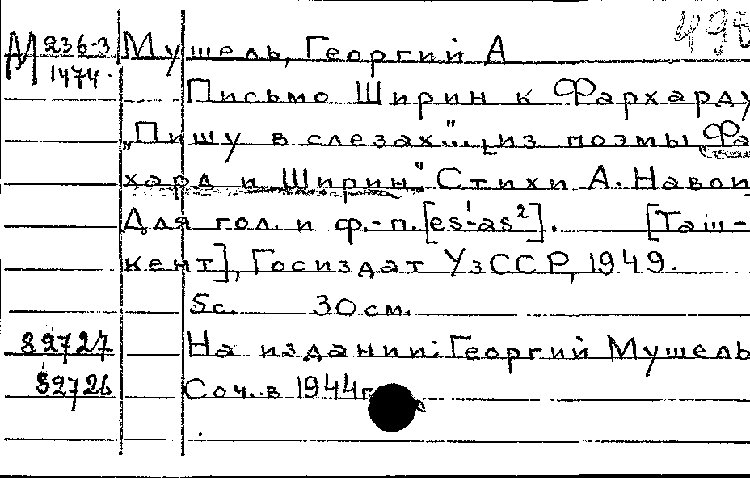 М 236-3 Мушель, Георгий А
1474.
Письмо Ширин к Фархарду
„Пишу в слезах"... из поэмы „Фа
хард и Ширин". Стихи А. Навои
Для гол. и ф.-п. [es¹-as²]. [Таш-
кент], Госиздат УзССР, 1949.
5с. 30 см.
82727 На издании: Георгий Мушель
82726 Соч. в 1944г